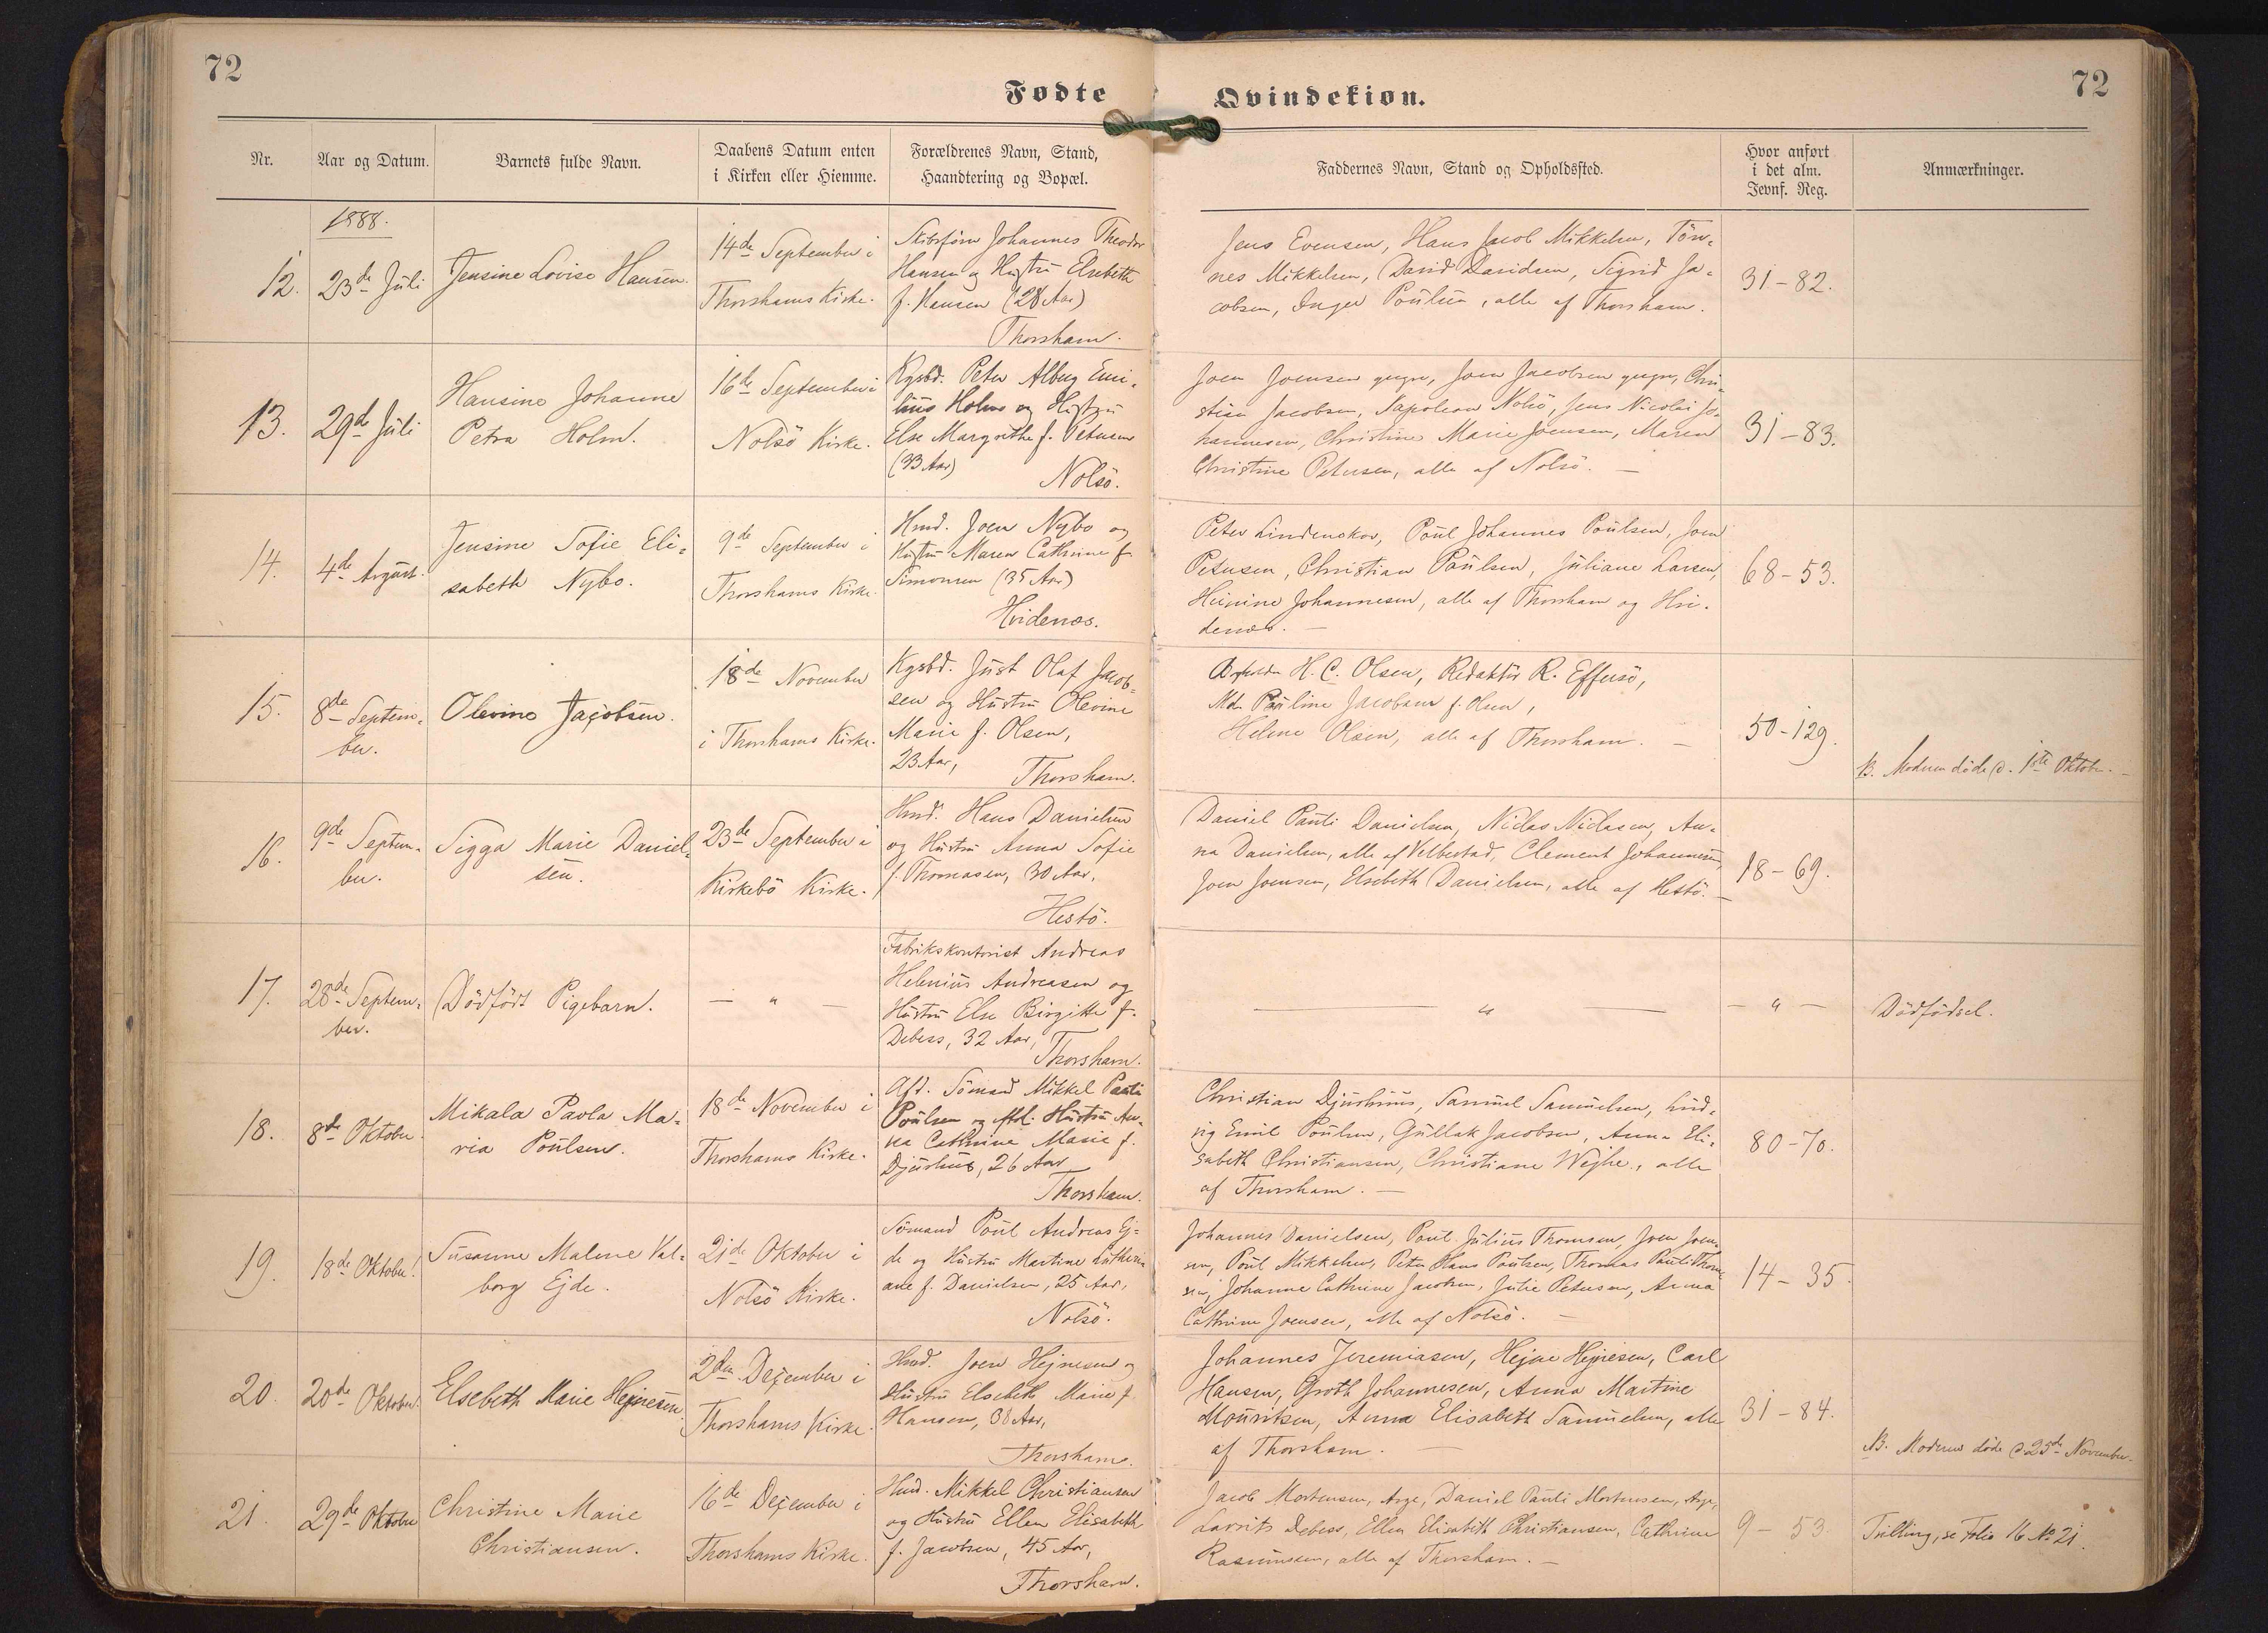 72
72
Fødte
Qvindekiøn.
Nr.
Aar og Datum.
Barnets fulde Navn.
Daabens Datum enten
i Kirken eller Hiemme.
Forældrenes Navn, Stand,
Haandtering og Bopæl.
Faddernes Navn, Stand og Opholdssted.
Hvor anført
i det alm.
Jevnf. Reg.
Anmærkninger.
1888.
12.
23de Juli
Jensine Lovise Hansen.
14de September i
Thorshavns Kirke.
Skibsfører Johannes Theodor
Hansen og Hustru Elsebeth
f. Hansen (28 Aar)
Thorshavn.
Jens Evensen, Hans Jacob Mikkelsen, Tön-
nes Mikkelsen, David Davidsen, Sigrid Ja-
cobsen, Inger Poulsen, alle af Thorshavn.
31-82.
13.
29de Juli
Hansine Johanne
Petra Holm.
16de September i
Nolsö Kirke.
Kgsbd. Peter Alberg Emi-
lius Holm og Hustru
Else Margrethe f. Petersen
(33 Aar)
Nolsö.
Joen Joensen yngre, Joen Jacobsen yngre, Chri-
stian Jacobsen, Napoleon Nolsö, Jens Nicolai Jo-
hannesen, Christine Marie Joensen, Maren
Christine Petersen, alle af Nolsö. —
31-83.
14.
4de August.
Jensine Sofie Eli-
sabeth Nybo.
9de September i
Thorshavns Kirke.
Hmd. Joen Nybo og
Hustru Maren Cathrine f.
Simonsen (35 Aar)
Hvidenæs.
Peter Lindenskov, Poul Johannes Poulsen, Joen
Petersen, Christian Poulsen, Juliane Larsen,
Heinine Johannesen, alle af Thorshavn og Hvi-
denæs. —
68-53.
15.
8de Septem-
ber.
Olevine Jacobsen.
18de November
i Thorshavns Kirke.
Kgsbd. Just Olaf Jacob-
sen og Hustru Olevine
Marie f. Olsen,
23 Aar,
Thorshavn.
H. C. Olsen, Redaktör R. Effersö,
Md. Pauline Jacobsen f. Olsen,
Helene Olsen, alle af Thorshavn. —
50-129.
NB. Moderen döde d. 1ste Oktober. —
16.
9de Septem-
ber.
Sigga Marie Daniel-
sen.
23de September i
Kirkebö Kirke.
Hmd. Hans Danielsen
og Hustru Anna Sofie
f. Thomasen, 30 Aar,
Hestö.
Daniel Pauli Danielsen, Niclas Niclasen, An-
na Danielsen, alle af Velbestad, Clement Johannesen,
Joen Joensen, Elsebeth Danielsen, alle af Hestö. —
18-69.
17.
28de Septem-
ber.
Dödfödt Pigebarn.
— " —
Fabrikskontorist Andreas
Helenius Andreasen og
Hustru Else Birgitte f.
Debess, 32 Aar,
Thorshavn.
— " —
— " —
Dödfödsel.
18.
8de Oktober.
Mikala Paola Ma-
ria Poulsen.
18de November i
Thorshavns Kirke.
Afd. Sömand Mikkel Pauli
Poulsen og eftl. Hustru An-
na Cathrine Marie f.
Djurhuus, 26 Aar
Thorshavn.
Christian Djurhuus, Samuel Samuelsen, Lud-
vig Emil Poulsen, Gullak Jacobsen, Anna Eli-
sabeth Christiansen, Christiane Wejhe, alle
af Thorshavn. —
80-70.
19.
18de Oktober.
Susanne Malene Val-
borg Ejde.
21de Oktober i
Nolsö Kirke.
Sömand Poul Andreas Ej-
de og Hustru Martine Cathri-
ane f. Danielsen, 25 Aar,
Nolsö.
Johannes Danielsen, Poul Julius Thomsen, Joen Joen-
sen, Poul Mikkelsen, Peter Hans Poulsen, Thomas Pauli Thom-
sen, Johanne Cathrine Jacobsen, Julie Petersen, Anna
Cathrine Joensen, alle af Nolsö. —
14-35.
20.
20de Oktober.
Elsebeth Marie Hejnesen.
2den December i
Thorshavns Kirke.
Hmd. Joen Hejnesen og
Hustru Elsebeth Marie f.
Hansen, 38 Aar,
Thorshavn.
Johannes Jeremiasen, Hejne Hejnesen, Carl
Hansen, Groth Johannesen, Anna Martine
Mouritsen, Anna Elisabeth Samuelsen, alle
af Thorshavn. —
31-84.
NB. Moderen döde d. 25de November.
21.
29de Oktober
Christine Marie
Christiansen.
16de December i
Thorshavns Kirke.
Hmd. Mikkel Christiansen
og Hustru Ellen Elisabeth
f. Jacobsen, 45 Aar,
Thorshavn.
Jacob Mortensen, Arge, Daniel Pauli Mortensen, Arge,
Lavrits Debess, Ellen Elisabeth Christiansen, Cathrine
Rasmussen, alle af Thorshavn. —
9-53.
Tvilling, se Folio 16 No 21.